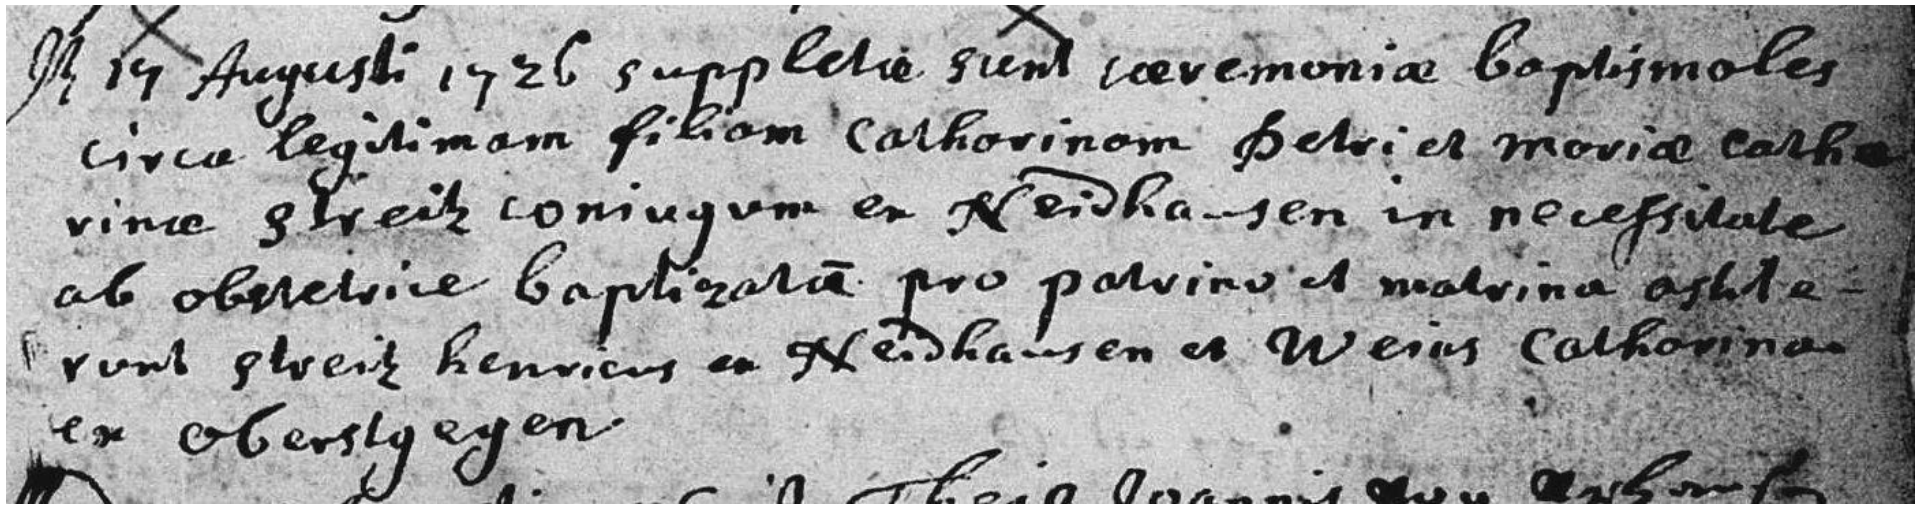 17 Augusti 1726 suppletæ sunt cæremoniæ baptismales
circa legitimam filiam Catharinam Petri et mariæ catha
rinæ streitz coniugum ex Neidhausen in necessitate
ab obstetrice baptizatā pro patrino et matrina astite-
runt streitz henricus ex Neidhausen et Weius Catharina
ex oberstgegen
Theis Joannis